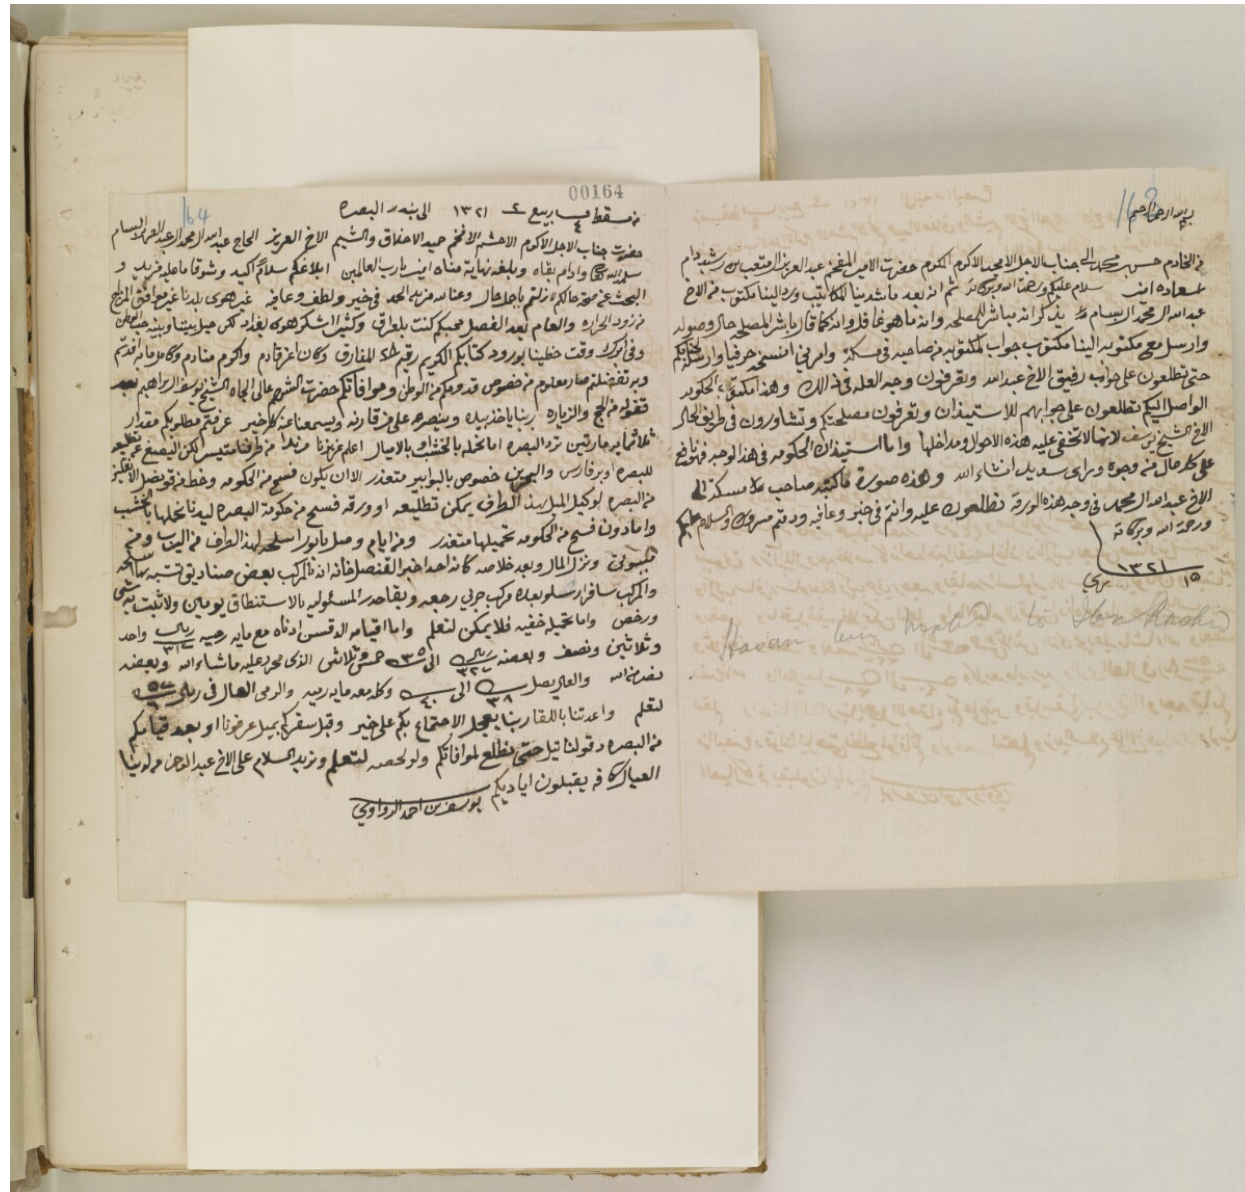 163
بسم الله الرحمن الرحيم
من الخادم حسن بن محمد الى جناب الاجل الامجد الاكرم المكرم حضرت الامير المفخم عبد العزيز المتعب بن رشيد دام
سلام عليكم ورحمة الله وبركاته ثم انه بعد ورد الينا مكتوب من الاخ
عبد الله المحمد البسام يذكر انه مباشر المصلحه وانه ما هو غافل وانه كما قال باشر المصلحه حال وصوله
وارسل مع مكتوبه الينا مكتوب جواب لمكتوبه من صاحبه في مسكة وامرني انسخه حرفيا وارسله لجنابكم
حتى تطلعون على جواب رفيق الاخ عبد الله وتعرفون وجه العله في ذلك وهذا
الواصل اليكم تطلعون على جوابهم للاستيذان وتعرفون مصلحتكم وتشاورون في طريق الحال
الاخ الشيخ يوسف لانها لا تخفى عليه هذه الاحوال ومداخلها واما استيذان الحكومه في هذا الوجه فهو نافع
على كل حال من وجوه وراى سديد انشاء الله وهذه صورة ما كتبه صاحب مسكة الى
الاخ عبد الله المحمد في وجه هذه الورقة تطلعون عليه وانتم في خير وعافيه ودمتم مسرورين والسلام عليكم
ورحمة الله وبركاته
١٥ ١٣٢١
Hasan bin to Ibn Rashid
00164
164
من مسقط ربيع ٢ ١٣٢١ الى بندر البصره
حضرت جناب الاجل الاكرم الاحشم الافخم حميد الاخلاق والشيم الاخ العزيز الحاج عبد الله المحمد العبد العزيز البسام
سلمه الله وادام بقاه وبلغه نهاية مناه امين يا رب العالمين ابلاغكم سلام اكيد وشوقا ما عليه مزيد و
البحث عن صحة حالكم لا زلتم باجل حال وعنا لله مزيد الحمد في خير ولطف وعافيه غير هوى بلدنا غير موافق المزاج
من زود الحراره والعام بعد الفصل محبكم كنت بالعراق وكثير اشكر هوى بغداد لكن حيل بيننا وبينه حب الوطن
وفي ابرك وقت حظينا بورود كتابكم الكريم رقيم المفارق وكان اعز قادم واكرم منادم وكامل ما به افدتم
وبه تفضلتم صار معلوم من خصوص قدومكم من الوطن وموافاتكم حضرت الشيخ عالي الجاه الشيخ يوسف البراهيم بعد
قفوله من الحج والزياره ربنا ياخذ بيده وينصره على من قارنه ويسمعنا عنه كل خير عرفتم مطلوبكم مقدار
ثلاثمايه مارتين ترد البصره اما تحمله بالخشب او بالاميال اعلم عزيزنا من طرفنا متيسر لكن
للبصره او بر فارس والبحرين خصوص بالبوابير متعذر الا ان يكون فسح من الحكومه وخط من قونصل الانقليز
من البصره لوكيل الميل بهذا الطرف يمكن تطليعه او ورقه فسح من حكومة البصره ليدنا نحملها بالخشب
واما دون فسح من الحكومه تحميلها متعذر ومن ايام وصل بابور اسلحه لهذا الطرف من
ونزل المال وبعد خلاصه كانه احد اخبر القنصلخانه انه بالمركب بعض صناديق تشبه سلحه
والمركب سافر ارسلو بعده مركب حربي رجعه وبقا صدر المسئوليه بالاستنطاق يومين ولا ثبت شي
ورخص واما تحميله خفيه فلا يمكن لتعلم واما اقيامه الدقسن ادناه مع مايه رميه ريال ٣١ واحد
وثلاثين ونصف وبعضه ريال ٣٢ الى ٣٥ خمس وثلاثين الذي مجرد عليه ماشاء الله وبعضه
نصر من الله والعال يصل ٣٨ الى ٤٠ وكله معه مايه رميه والرمي العال في ريال
لتعلم واعدتنا باللقا ربنا يعجل الاجتماع بكم على خير وقبل سفركم بميل عرفونا او بعد قيامكم
من البصره دقو لنا تيل حتى نطلع لموافاتكم ولو لحصه لتعلم ونريد السلام على الاخ عبد الرحمن من لدينا
العيال كافه يقبلون اياديكم يوسف بن احمد الزواوي